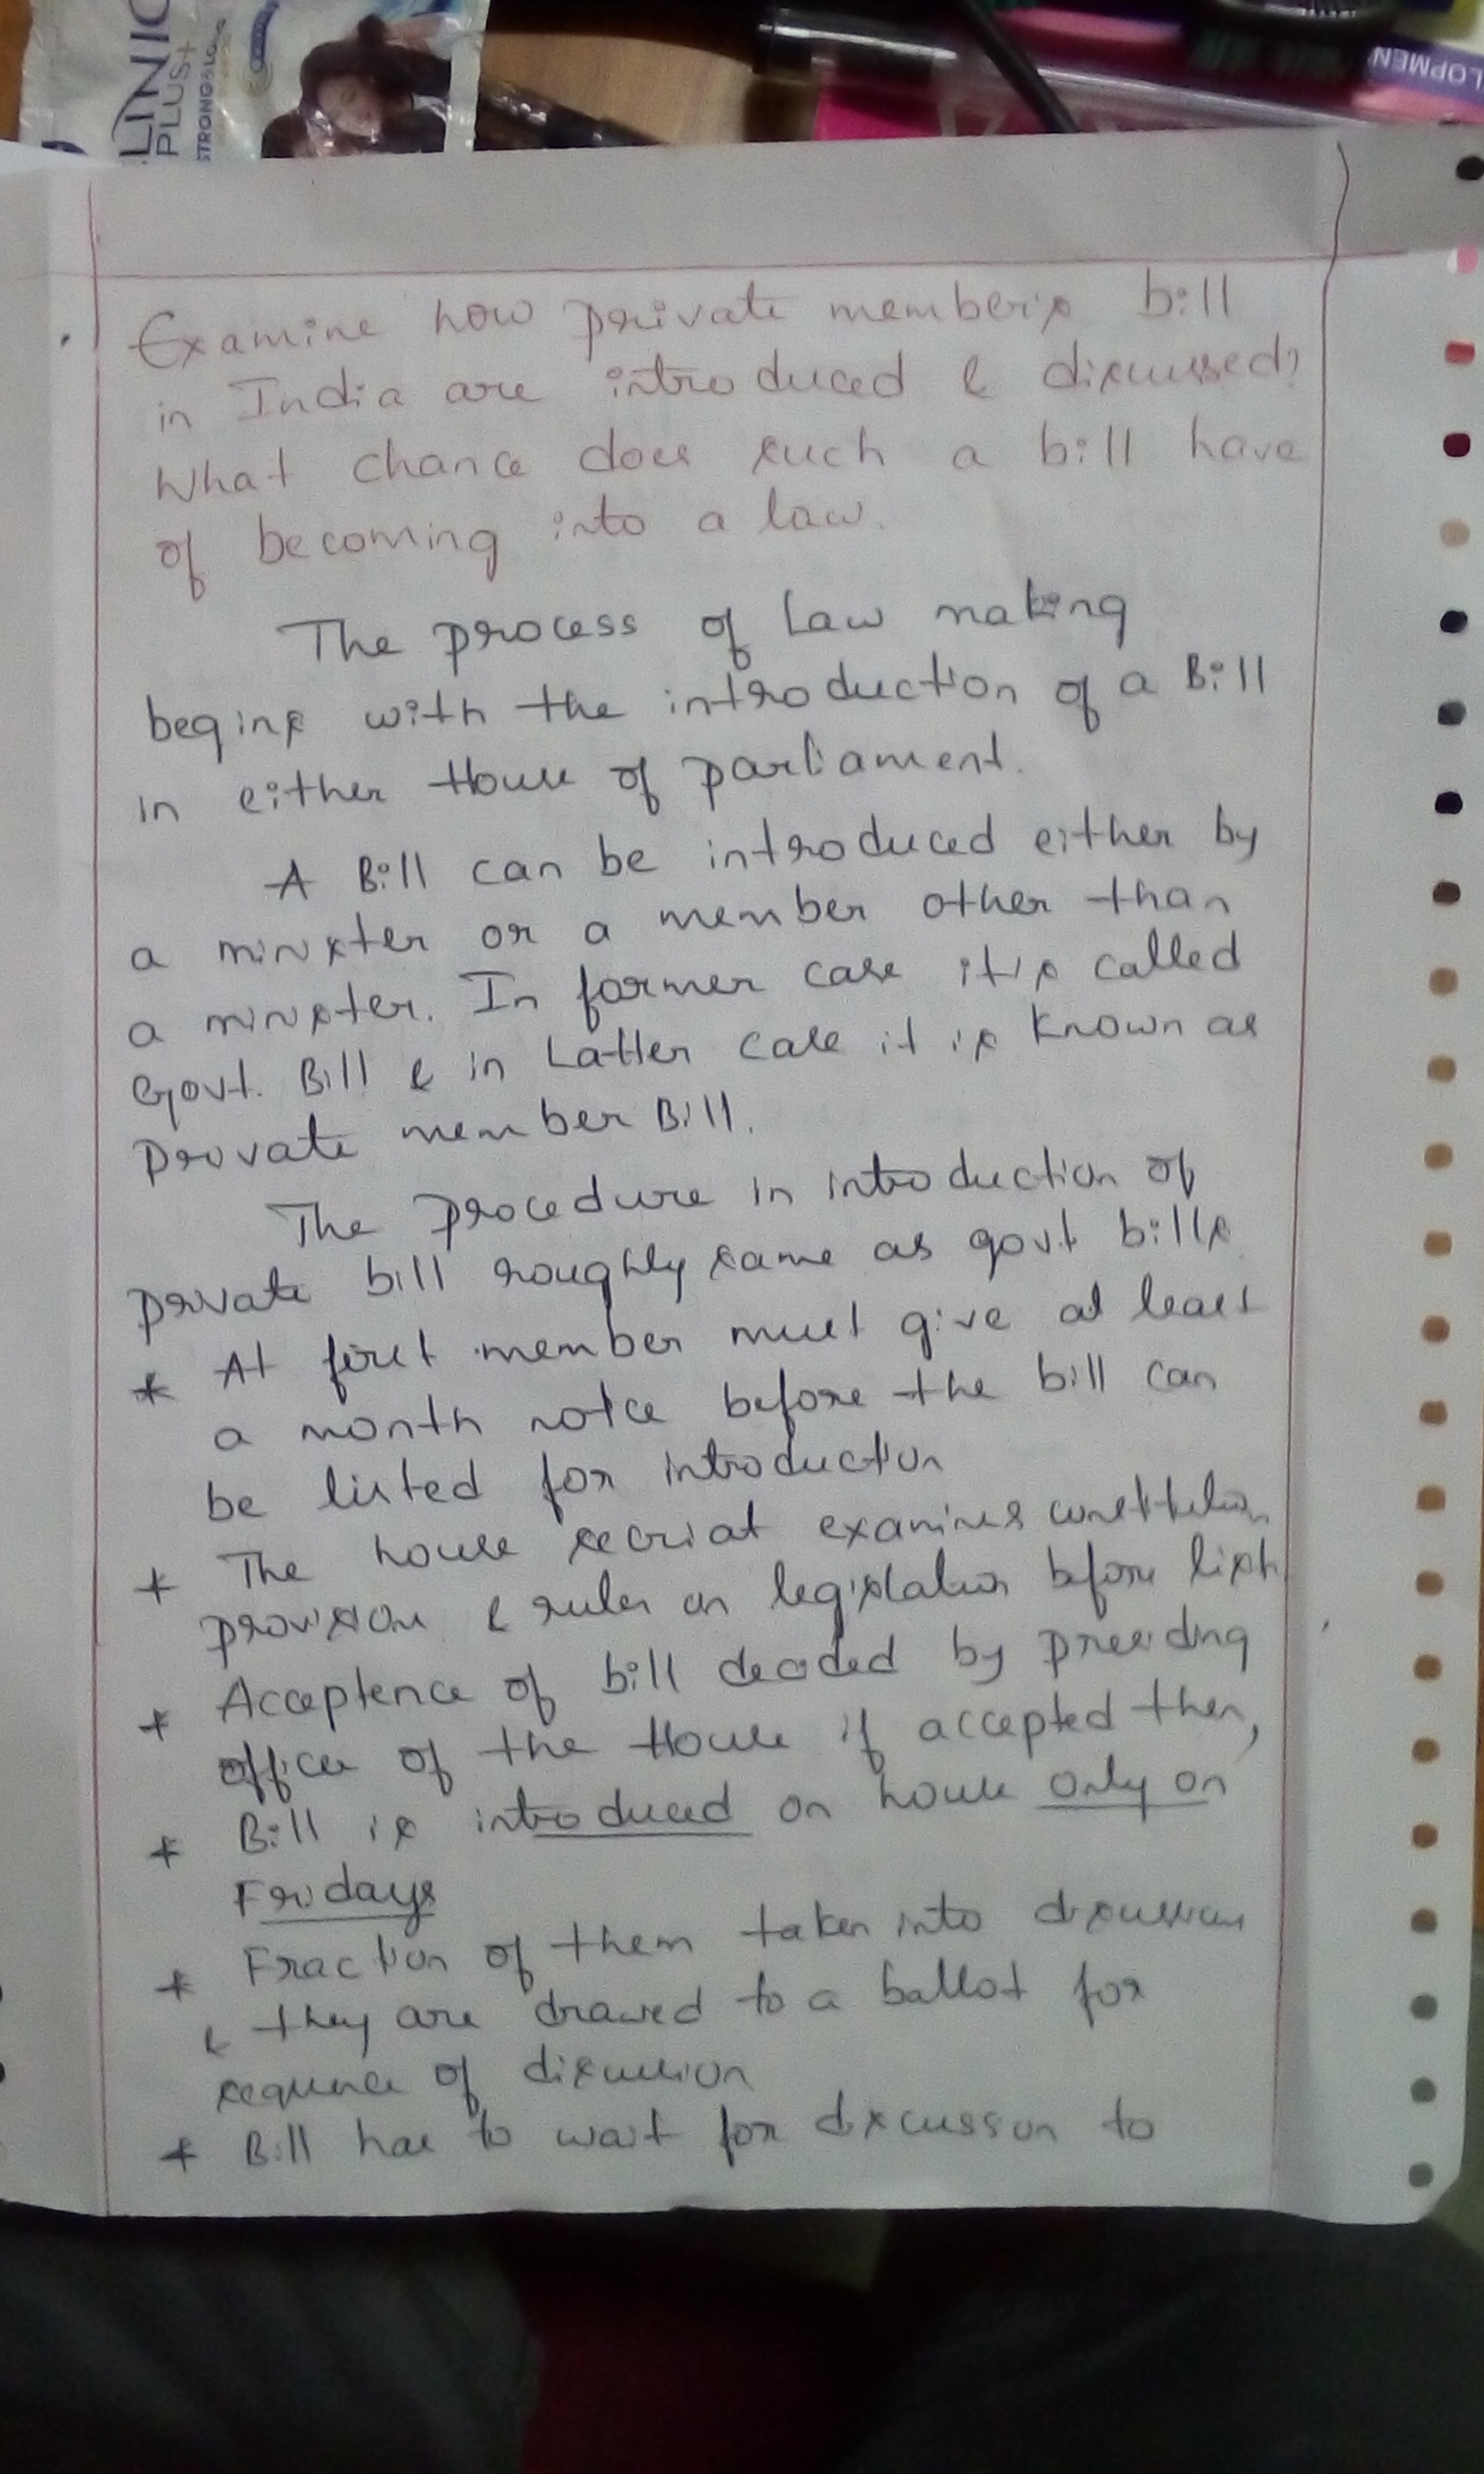 CLINIC
PLUS+
STRONG & LO
LOPMEN
Examine how private member's bill
in India are introduced & discussed?
What chance does such a bill have
of becoming into a law.
The process of Law making
begins with the introduction of a Bill
in either House of parliament.
A Bill can be introduced either by
a minister or a member other than
a minister. In former case it is called
Govt. Bill & in Latter case it is known as
private member Bill.
The procedure in introduction of
private bill roughly same as govt bills.
* At first member must give at least
a month notce before the bill can
be listed for introduction
* The house examines
provision & rules on legislation before
* Acceptence of bill decided by presiding
officer of the House if accepted then,
* Bill is introduced on house only on
Fridays
* Fraction of them taken into discussion
& they are drawed to a ballot for
sequence of discussion
* Bill has to wait for discussion to